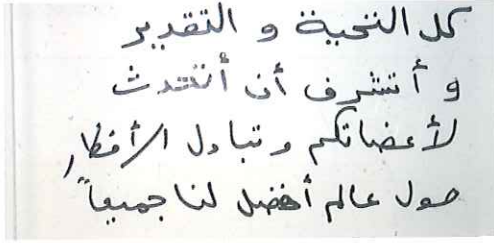 كل التحية و التقدير
و أتشرف أن أتحدث
لأعضائكم و تبادل الأفكار
حول عالم أفضل لنا جميعاً